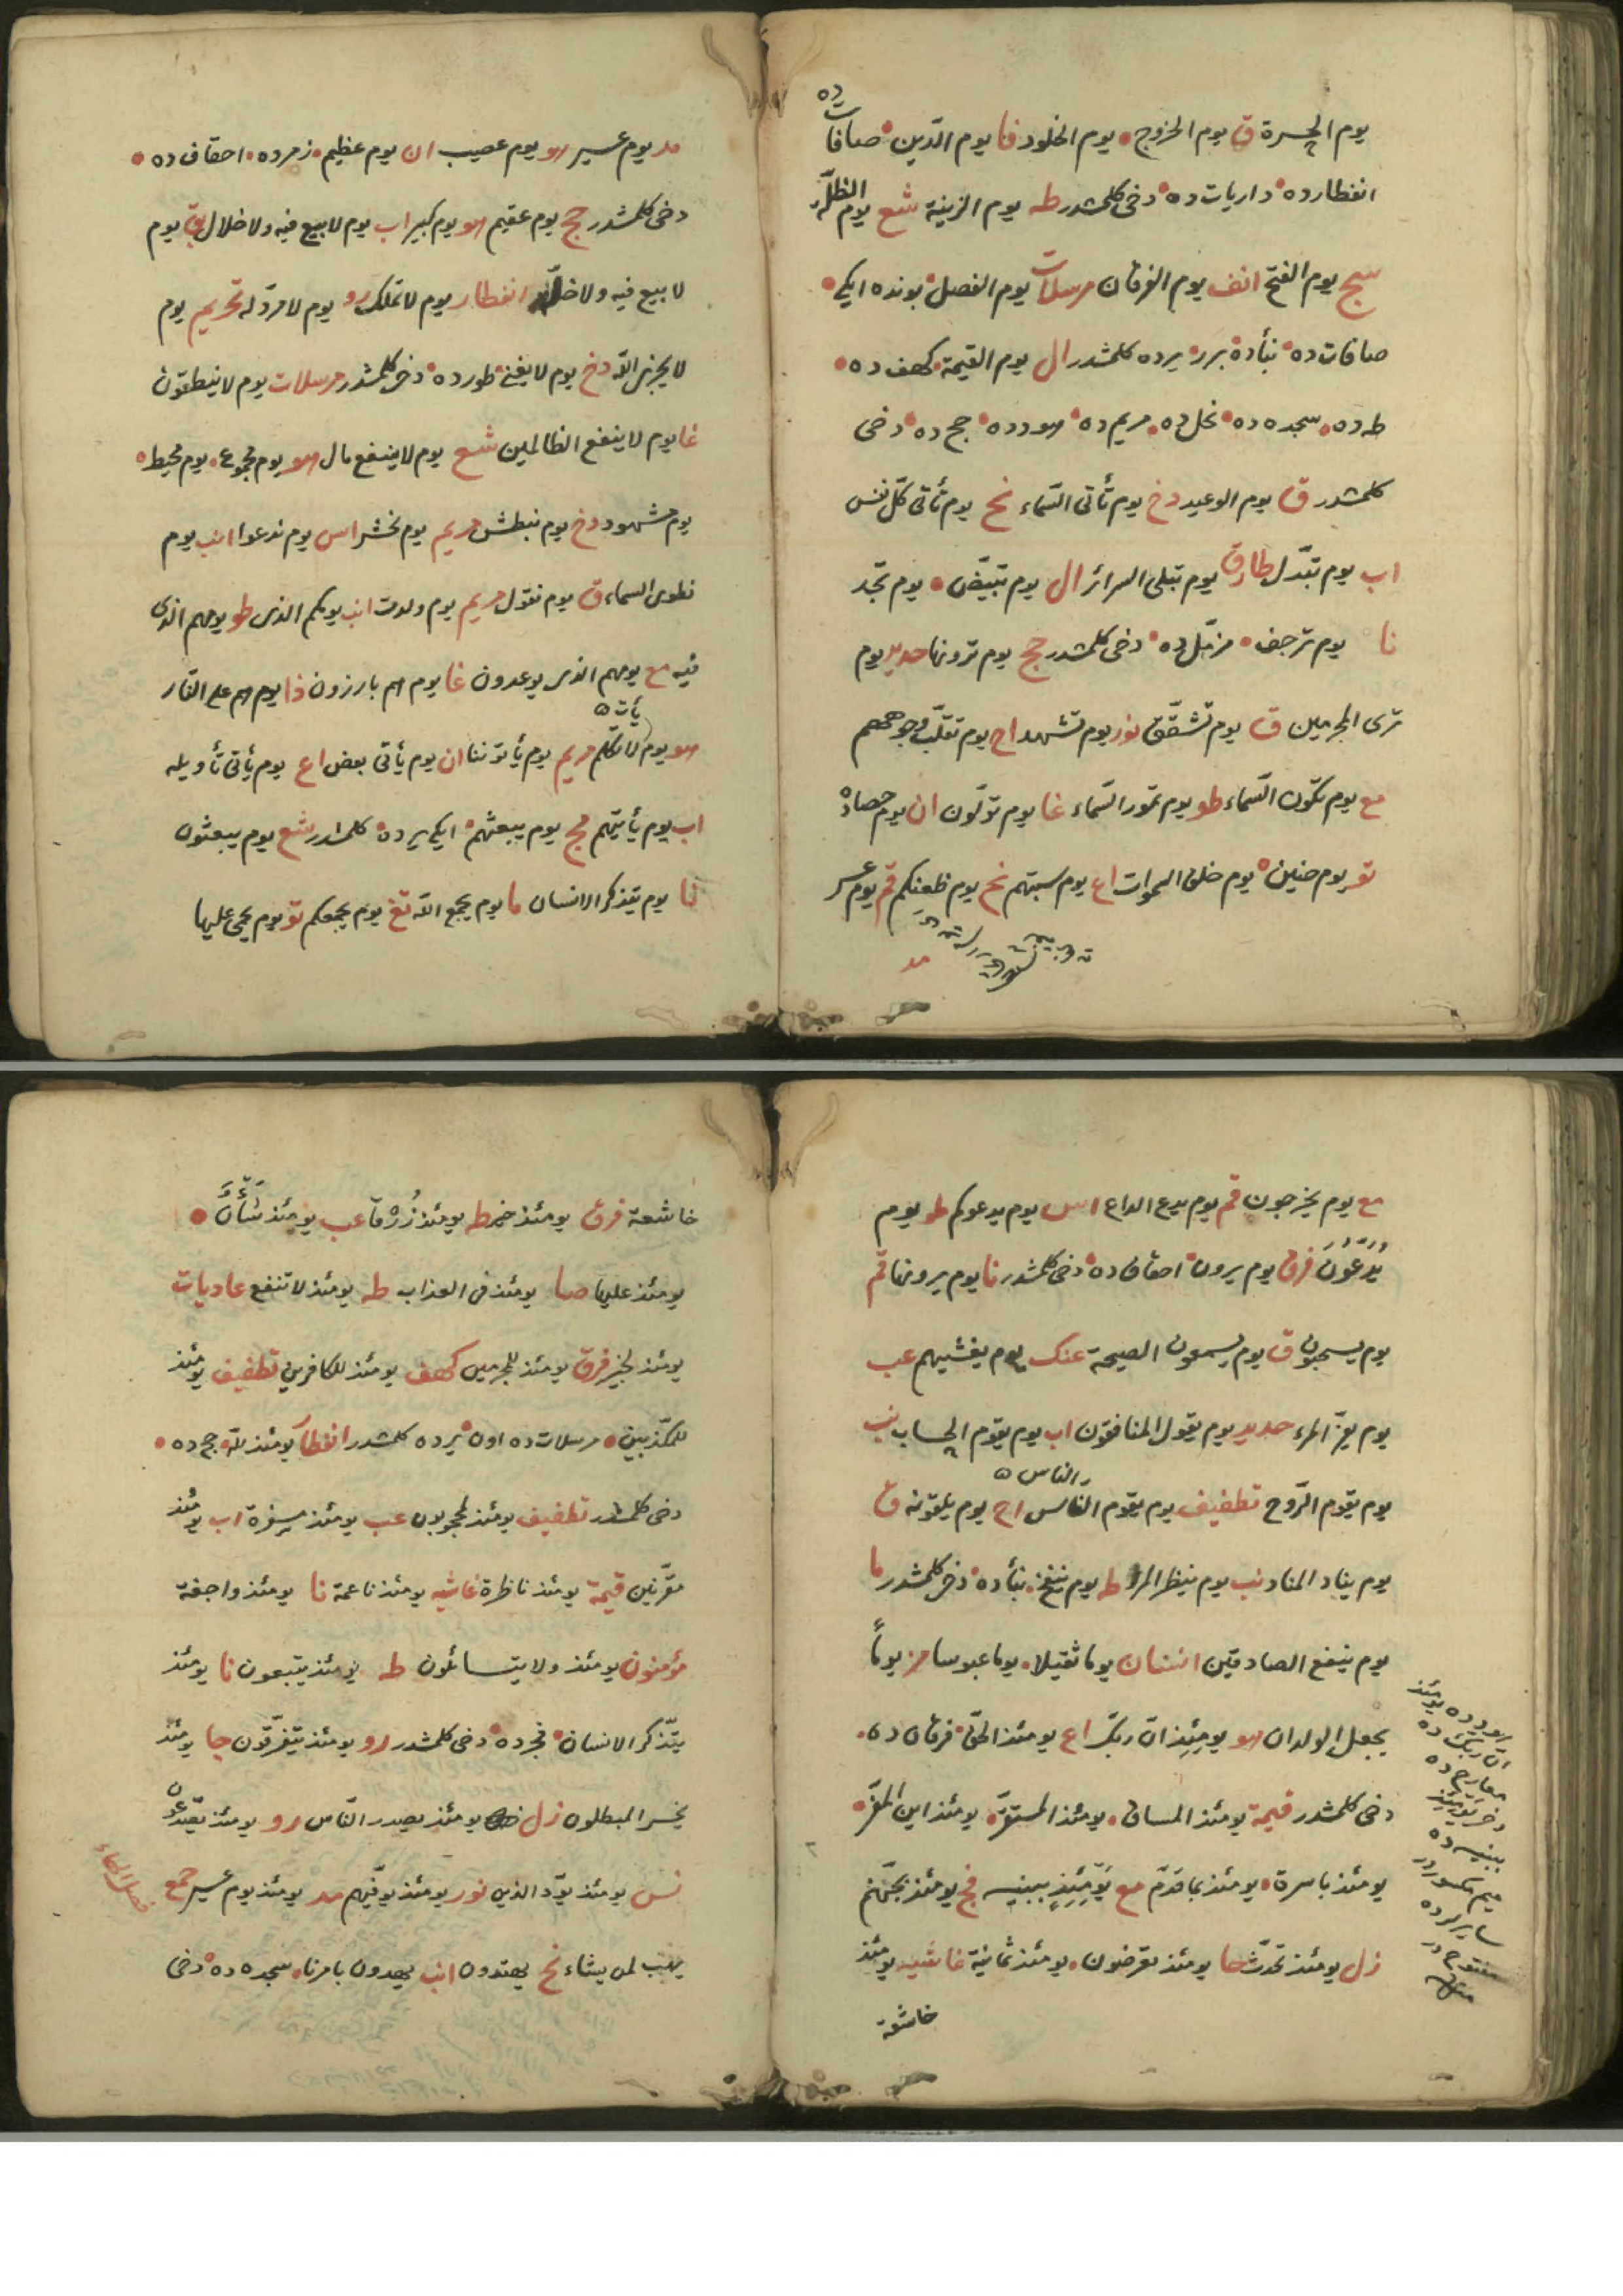 ده
يوم الحسرة ق يوم الخروج يوم الخلود فا يوم الدّين صافات
انفطارده داريات ده دخى كلمشدر طه يوم الزينة شع يوم الظلّة
سج يوم الفتح انف يوم الفرقان مرسلات يوم الفصل بونده ايكى
صافات ده نبأده برر يرده كلمشدر ال يوم القيمة كهف ده
طه ده سجده ده نحل ده مريم ده هودده حج ده دخى
كلمشدر ق يوم الوعيد دخ يوم تأتى السّماء نح يوم تأتى كلّ نفس
اب يوم تبدّل طارق يوم تبلى السرائر ال يوم تبيضّ يوم تجد
نا يوم ترجف مزمّل ده دخى كلمشدر حج يوم ترونها حديد يوم
ترى المجرمين ق يوم تشقّق نور يوم تشهد اح يوم تقلّب وجوههم
مع يوم تكون السّماء طو يوم تمور السّماء غا يوم تولّون ان يوم حصاده
تو يوم حنين يوم خلق السموات اع يوم سبتهم نح يوم ظعنكم قم يوم عسر
مد
مد يوم عسير هو يوم عصيب ان يوم عظيم زمرده احقاف ده
دخى كلمشدر حج يوم عقيم هو يوم كبير اب يوم لا بيع فيه ولا خلال بق يوم
لا بيع فيه ولا خلّة انفطار يوم لا تملك رو يوم لا مردّ له تحريم يوم
لا يخزى اللّه دخ يوم لا يغنى طورده دخى كلمشدر مرسلات يوم لا ينطقون
غا يوم لا ينفع الظالمين شع يوم لا ينفع مال هو يوم مجموع يوم محيط
يوم مشهود دخ يوم نبطش مريم يوم نحشر اس يوم ندعوا انب يوم
نطوى السماء ق يوم نقول مريم يوم ولدت انب يومكم الذى طو يومهم الذى
فيه مع يومهم الذى يوعدون غا يوم هم بارزون ذا يوم هم على النّار
يأت
هو يوم لا تكلّم مريم يوم يأتوننا ان يوم يأتى بعض اع يوم يأتى تأويله
اب يوم يأتيهم مج يوم يبعثهم ايكى يرده كلمشدر شع يوم يبعثون
نا يوم يتذكر الانسان ما يوم يجمع اللّه تغ يوم يجمعكم تو يوم يحمى عليها
مع يوم يخرجون قم يوم يدع الداع اس يوم يدعوكم طو يوم
يُدَعُّونَ فرق يوم يرون احقاف ده دخى كلمشدر نا يوم يرونها قم
يوم يسحبون ق يوم يسمعون الصيحة عنك يوم يغشيهم عب
يوم يفرّ المرء حديد يوم يقول المنافقون اب يوم يقوم الحساب نب
الناس
يوم يقوم الرّوح تطفيف يوم يقوم الناس اح يوم يلقونه ق
يوم يناد المناد نب يوم ينظر المرء طه يوم ينفخ نبأده دخى كلمشدر ما
يوم ينفع الصادقين انسان يوما ثقيلا يوما عبوسا مز يوماً
يجعل الولدان هو يومئذ انّ ربّك اع يومئذ الحقّ فرقان ده
دخى كلمشدر قيمة يومئذ المساق يومئذ المستقرّ يومئذ اين المفرّ
يومئذ باسرة يومئذ بما قدّم مع يَوْمَئِذٍ ببنيه فج يومئذ بجهنّم
زل يومئذ تحدّث حا يومئذ تعرضون يومئذ ثمانية غاشيه يومئذ
خاشعة
هودده يومئذ
انّ ربّك ده
معارج ده
دخى يومئذ
ببنيه ده
ميم مكسوردر
ساير لرده
مفتوح در
خاشعة فرق يومئذ خير طه يومئذ زُرْقا عب يومئذ شأن
يومئذ عليها صا يومئذ فى العذاب طه يومئذ لا تنفع عاديات
يومئذ لخبير فرق يومئذ للمجرمين كهف يومئذ للكافرين تطفيف يومئذ
للمكذّبين مرسلات ده اون يرده كلمشدر انفطار يومئذ للّه حج ده
دخى كلمشدر تطفيف يومئذ لمحجوبون عب يومئذ مسفرة اب يومئذ
مقرّنين قيمة يومئذ ناضرة غاشيه يومئذ ناعمة نا يومئذ واجفة
مؤمنون يومئذ ولا يتسائلون طه يومئذ يتبعون نا يومئذ
يتذكّر الانسان فجرده دخى كلمشدر رو يومئذ يتفرّقون جا يومئذ
يخسر المبطلون زل يومئذ يصدر النّاس رو يومئذ يصّدّعون
نس يومئذ يودّ الذين نور يومئذ يوفّيهم مد يومئذ يوم عسير حمع
فصل الهاء
يهب لمن يشاء نح يهتدون انب يهدون بامرنا سجده ده دخى